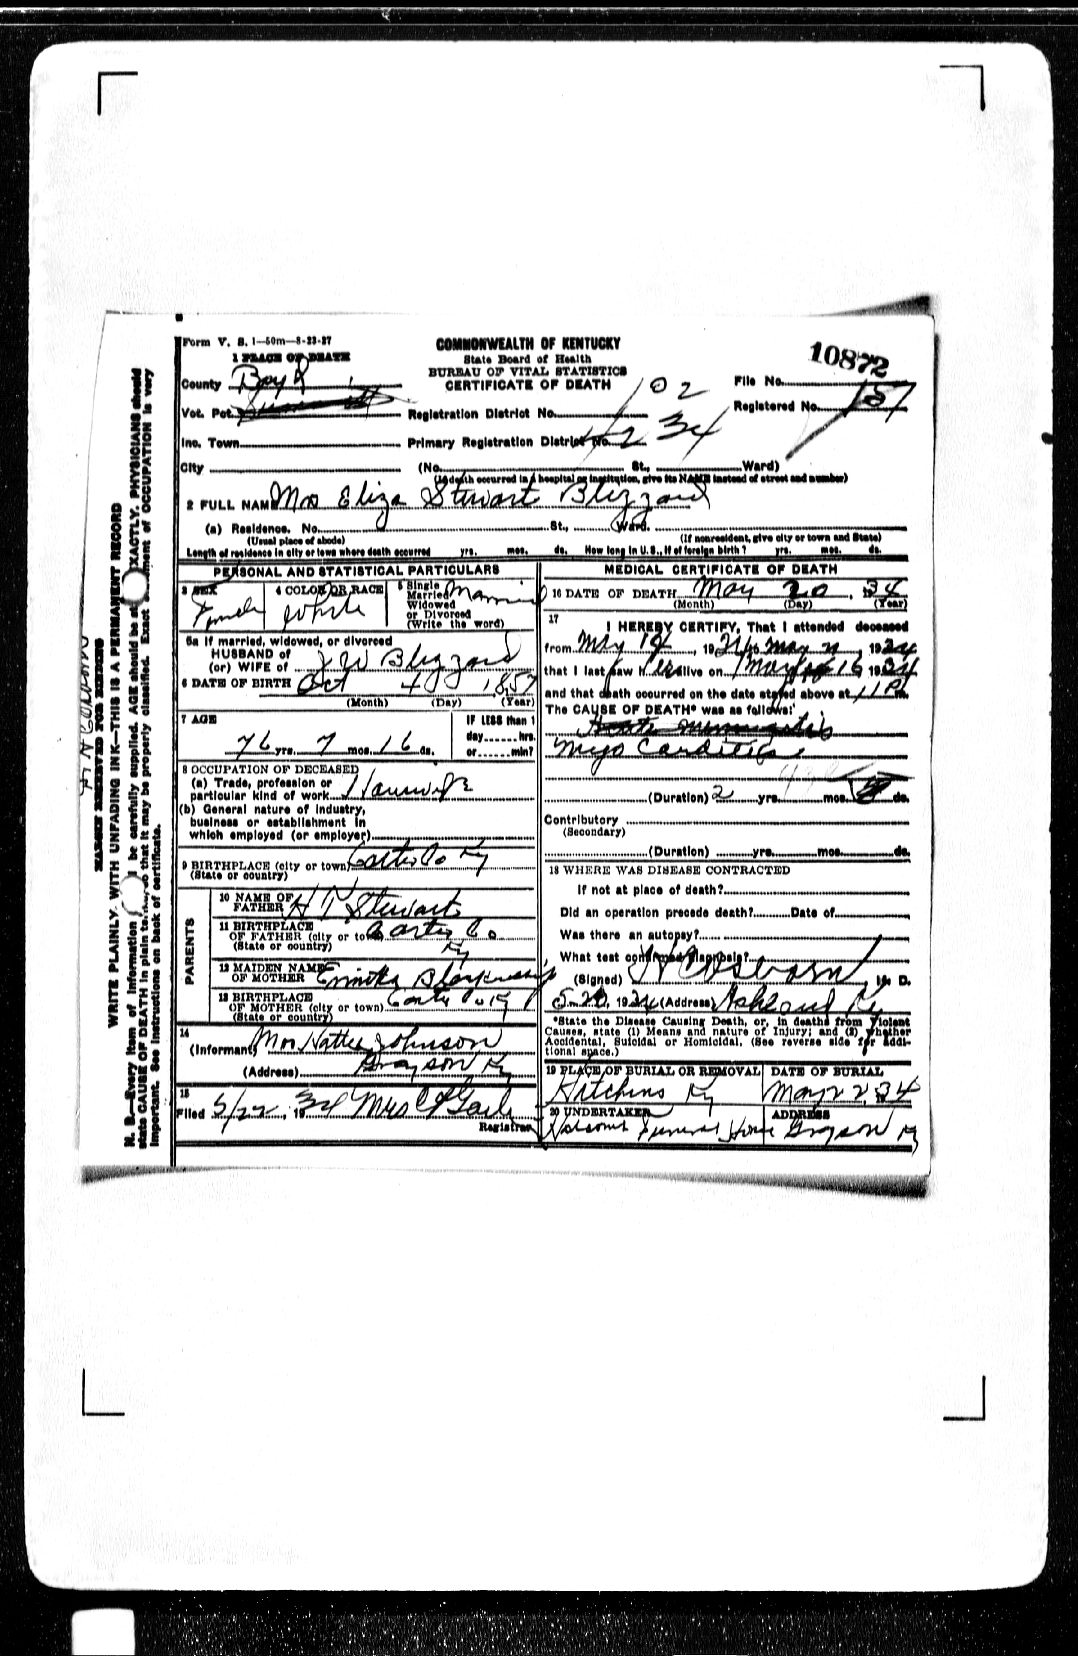 Form V. S. 1—50m—8-23-27
COMMONWEALTH OF KENTUCKY
State Board of Health
BUREAU OF VITAL STATISTICS
CERTIFICATE OF DEATH
10872
1 PLACE OF DEATH
County Boyd
Vot. Pct.
Inc. Town
City
File No.
Registered No.
Registration District No. 102
Primary Registration District No. 1234
(No. St., Ward)
(If death occurred in a hospital or institution, give its NAME instead of street and number)
2 FULL NAME Mrs Eliza Stewart Blizzard
(a) Residence. No. St., Ward.
(Usual place of abode) (If nonresident, give city or town and State)
Length of residence in city or town where death occurred yrs. mos. ds. How long in U. S., if of foreign birth? yrs. mos. ds.
PERSONAL AND STATISTICAL PARTICULARS
3 SEX Female
4 COLOR OR RACE White
5 Single Married Widowed or Divorced (Write the word) Married
5a If married, widowed, or divorced
HUSBAND of
(or) WIFE of J W Blizzard
6 DATE OF BIRTH Oct 4 1857
(Month) (Day) (Year)
7 AGE
76 yrs. 7 mos. 16 ds.
IF LESS than 1
day hrs.
or min?
8 OCCUPATION OF DECEASED
(a) Trade, profession or
particular kind of work Housewife
(b) General nature of industry,
business or establishment in
which employed (or employer)
9 BIRTHPLACE (city or town) Carter Co Ky
(State or country)
PARENTS
10 NAME OF
FATHER Stewart
11 BIRTHPLACE
OF FATHER (city or town) Carter Co
(State or country) Ky
12 MAIDEN NAME
OF MOTHER Blankenship
13 BIRTHPLACE
OF MOTHER (city or town) Carter Co Ky
(State or country)
14
(Informant) Mrs Hattie Johnson
(Address) Grayson Ky
15
Filed 5/22, 1934 Mrs
Registrar
MEDICAL CERTIFICATE OF DEATH
16 DATE OF DEATH May 20, 1934
(Month) (Day) (Year)
17
I HEREBY CERTIFY, That I attended deceased
from May 14, 1934 to May, 1934
that I last saw her alive on May 16 1934
and that death occurred on the date stated above at 11 P m.
The CAUSE OF DEATH* was as follows:
Myo Carditis
(Duration) 2 yrs. mos. ds.
Contributory
(Secondary)
(Duration) yrs. mos. ds.
18 WHERE WAS DISEASE CONTRACTED
If not at place of death?
Did an operation precede death? Date of
Was there an autopsy?
What test confirmed diagnosis?
(Signed) H C Osborn M. D.
5-20, 1934 (Address) Ashland Ky
*State the Disease Causing Death, or, in deaths from Violent
Causes, state (1) Means and nature of Injury; and (2) whether
Accidental, Suicidal or Homicidal. (See reverse side for addi-
tional space.)
19 PLACE OF BURIAL OR REMOVAL
Hitchins Ky
DATE OF BURIAL
May 22, 34
20 UNDERTAKER
Funeral Home
ADDRESS
Grayson Ky
MARGIN RESERVED FOR BINDING
WRITE PLAINLY, WITH UNFADING INK—THIS IS A PERMANENT RECORD
N. B.—Every item of information be carefully supplied. AGE should be st EXACTLY. PHYSICIANS should
state CAUSE OF DEATH in plain so that it may be properly classified. Exact ment of OCCUPATION is very
important. See instructions on back of certificate.